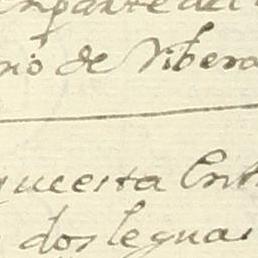 rio de Ribera
puesta Ent
dos leguas